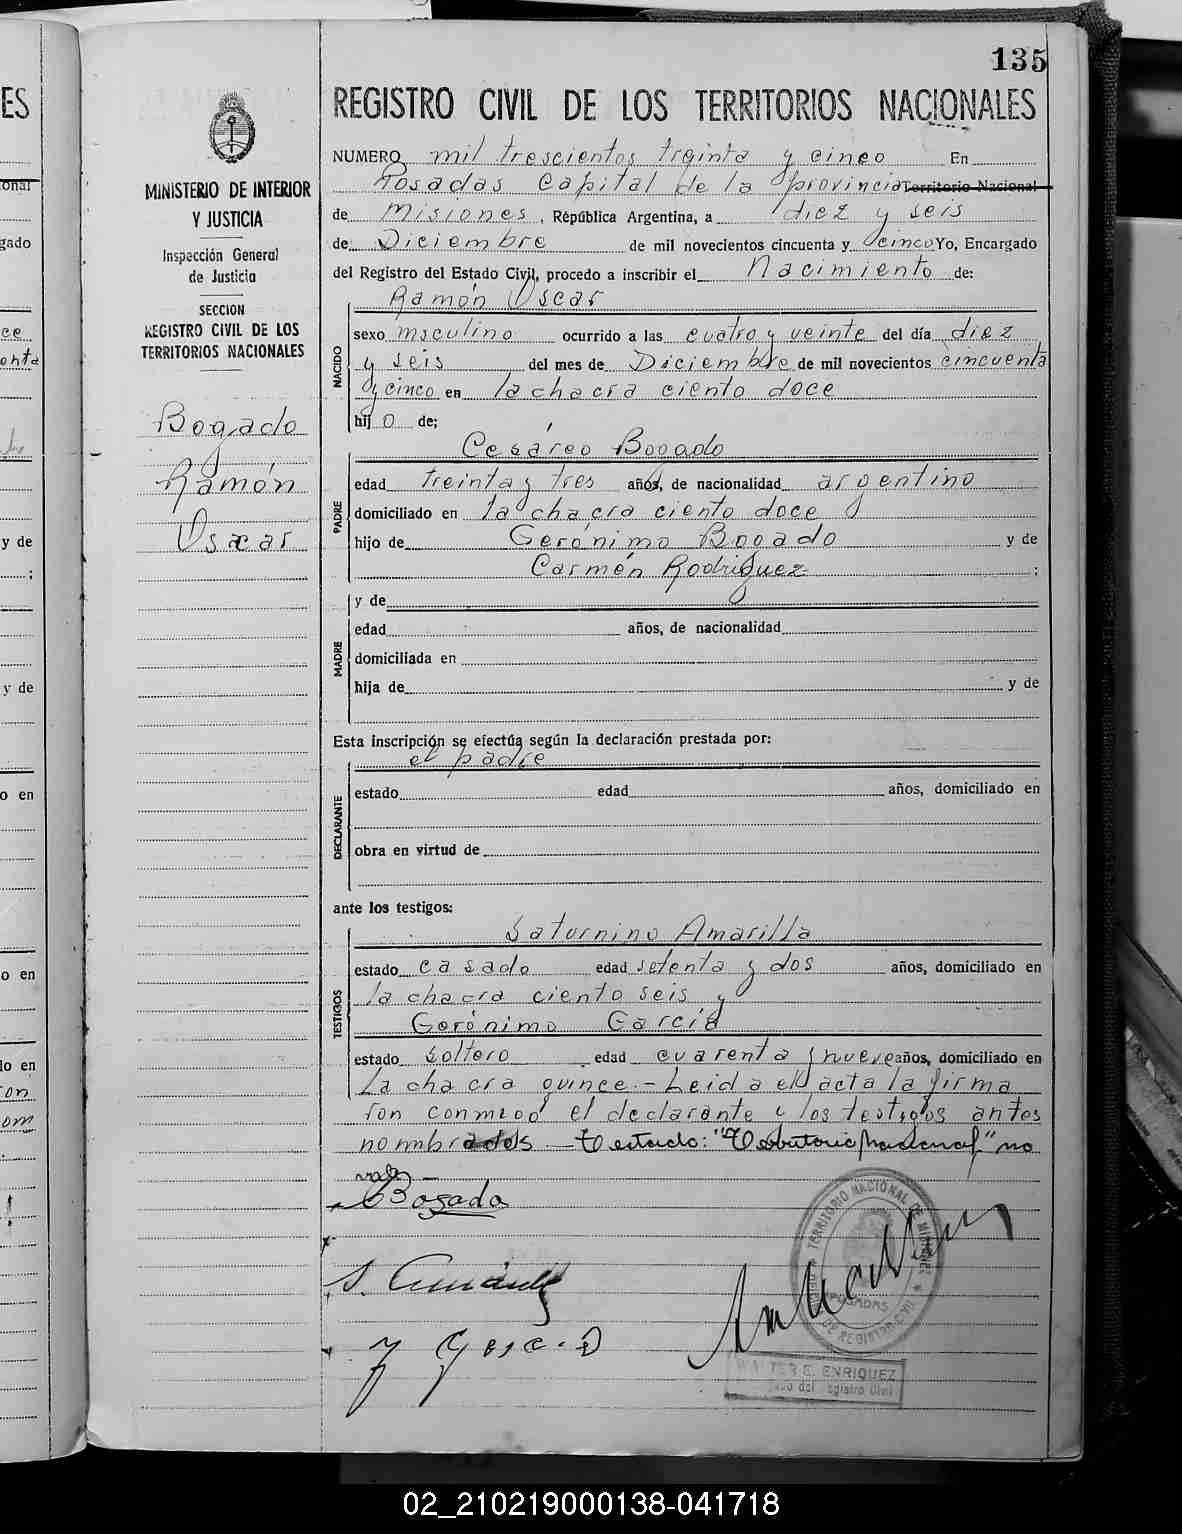 135
REGISTRO CIVIL DE LOS TERRITORIOS NACIONALES
NUMERO mil trescientos trginta y cinco En
Posadas Capital de la provincia Territorio Nacional
de Misiones, República Argentina, a diez y seis
de Diciembre de mil novecientos cincuenta y cinco Yo, Encargado
del Registro del Estado Civil, procedo a inscribir el Nacimiento de:
Ramón Oscar
NACIDO
sexo msculino ocurrido a las cuatro y veinte del día diez
y seis del mes de Diciembre de mil novecientos cincuenta
y cinco en la chacra ciento doce
hijo de;
Cesáreo Bogado
PADRE
edad treinta y tres años, de nacionalidad argentino
domiciliado en la chacra ciento doce
hijo de Gerónimo Bogado y de
Carmén Rodriguez ;
y de
MADRE
edad años, de nacionalidad
domiciliada en
hija de y de
Esta inscripción se efectúa según la declaración prestada por:
el padre
DECLARANTE
estado edad años, domiciliado en
obra en virtud de
ante los testigos:
Saturnino Amarilla
TESTIGOS
estado casado edad setenta y dos años, domiciliado en
la chacra ciento seis y
Gerónimo García
estado soltero edad cuarenta y nueve años, domiciliado en
La chacra quince.- Leida el acta la firma
ron conmigo el declarante y los testigos antes
nombrados - Testado: "Territorio Nacional" no
vale -
Bogado
TERRITORIO NACIONAL DE MISIONES
POSADAS
WALTER E. ENRIQUEZ
del Registro Civil
MINISTERIO DE INTERIOR
Y JUSTICIA
Inspección General
de Justicia
SECCION
REGISTRO CIVIL DE LOS
TERRITORIOS NACIONALES
Bogado
Ramón
Oscar
ES
onal
gado
ce
y de
;
y de
o en
o en
do en
ron
om
02_210219000138-041718